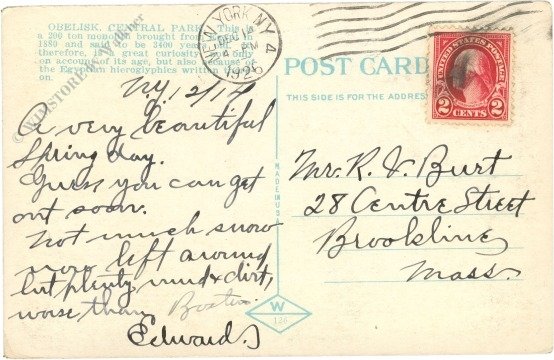 OBELISK, CENTRAL PARK. This
a 200 ton mono brought from
1880 and said to be 3400 years
therefore, is a great curiosity, not
on account of its age, but also because of
the Egyptian hieroglyphics written
NEW YORK, N.Y.
DEC 1
PM
1926
POST CARD
THIS SIDE IS FOR THE ADDRESS
UNITED STATES POSTAGE
2 CENTS 2
MADE IN U.S.A.
N.Y. 12/14
A very beautiful
Spring day.
Guess you can get
out soon.
Not much snow
now left around
but plenty mud & dirt,
worse than Boston.
Edward.
Mr. R. V. Burt
28 Centre Street
Brookline
Mass.
W
126